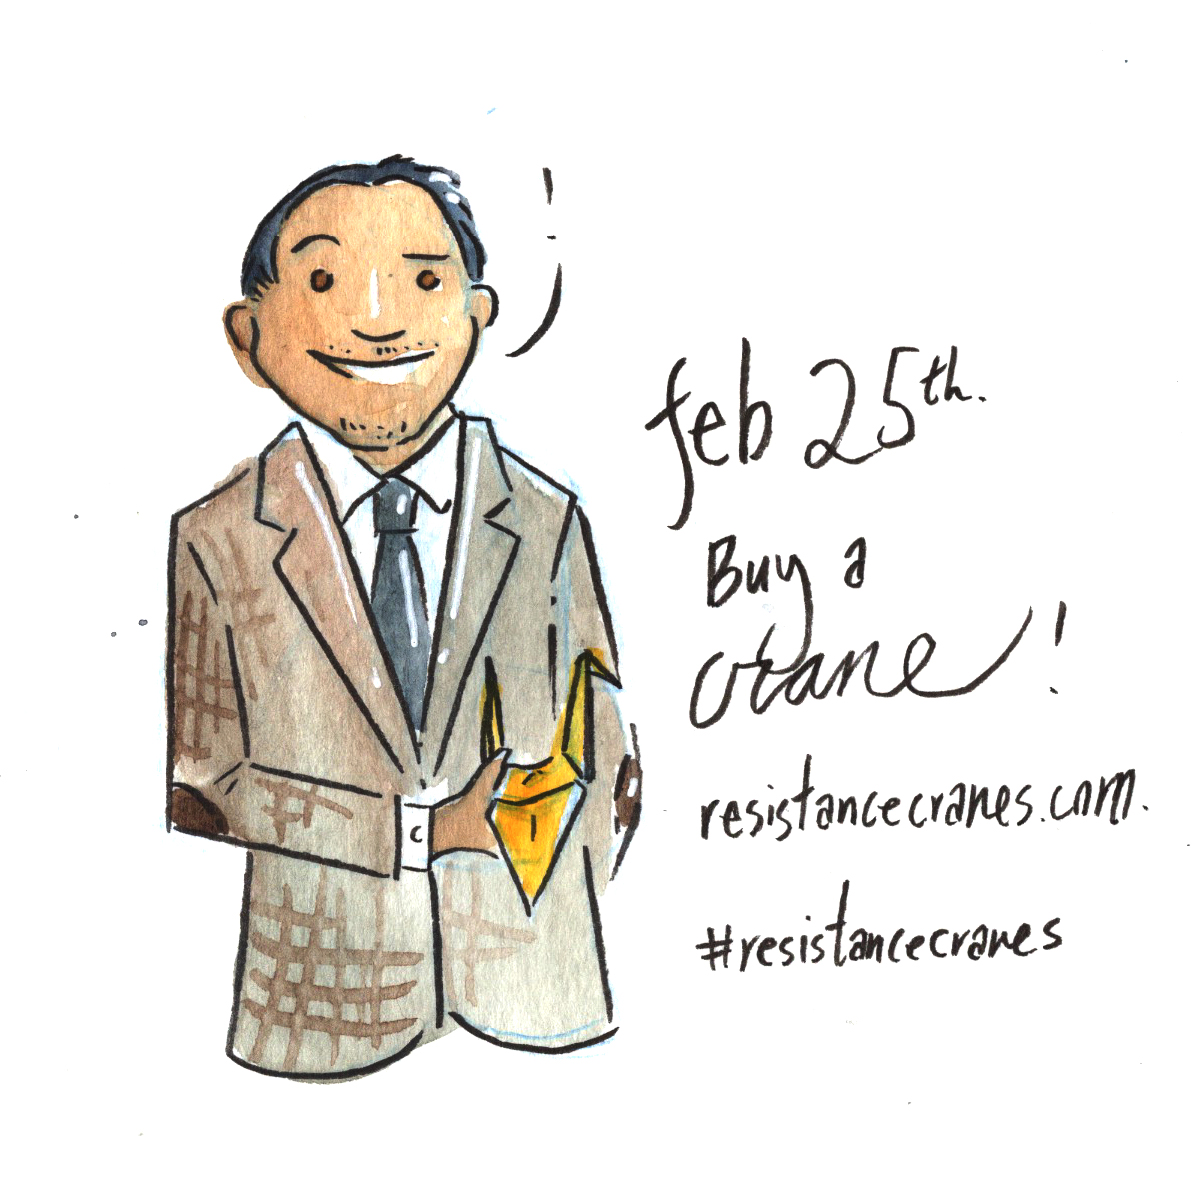 feb 25th.
Buy a
crane!
resistancecranes.com.
#resistancecranes
C